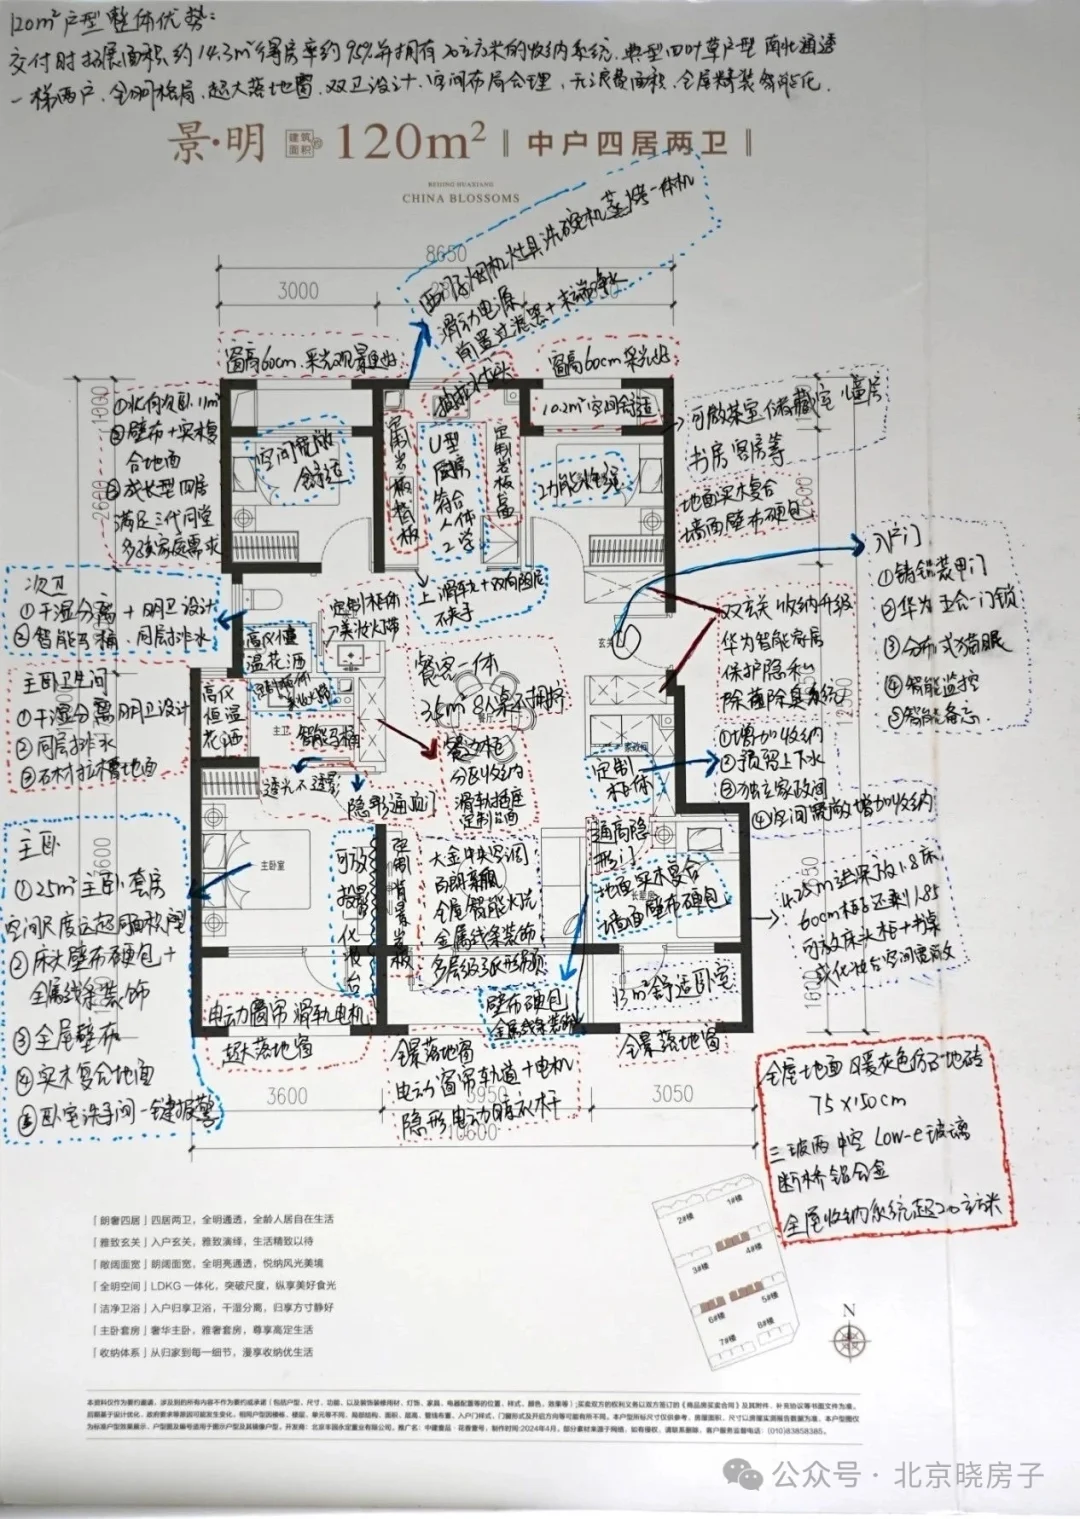 120m²户型整体优势:
交付时拓展面积约14.3m²得房率约95%并拥有20立方米的收纳系统,典型四叶草户型 南北通透
一梯两户、全明格局、超大落地窗、双卫设计、空间布局合理,无浪费面积、全屋精装智能化.
景·明 建筑面积约 120m² 中户四居两卫
BEIJING HUAXIANG
CHINA BLOSSOMS
西门子烟机灶具洗碗机蒸烤一体机
滑动电源
前置过滤器+末端净水
8650
3000
窗高60cm.采光观景更好
抽拉水龙头
窗高60cm采光好
①北向次卧.11m²
②壁布+实木复合地面
③成长型四居
满足三代同堂
多孩家庭需求
空间宽敞
舒适
定制岩板背板
U型
厨房
符合
人体
工学
定制岩板台面
10.2m²空间舒适
功能性强
可做茶室 储藏室 儿童房
书房 客房等
地面实木复合
墙面壁布硬包
上滑轨+双向阻尼
不夹手
入户门
①铸铝装甲门
②华为五合一门锁
③分布式猫眼
④智能监控
⑤智能备忘
双玄关 收纳升级
华为智能家居
保护隐私
除菌除臭系统
玄关
次卫
①干湿分离+明卫设计
②智能马桶.同层排水
高仪恒
温花洒
定制柜体
美妆灯带
主卧卫生间
①干湿分离 明卫设计
②同层排水
③石材拉槽地面
高仪
恒温
花洒
主卫
智能马桶
透光不透影
隐形通风门
餐客一体
35m² 8人桌不拥挤
餐厅
餐边柜
分区收纳
滑轨插座
定制台面
家政间
定制
柜体
①增加收纳
②预留上下水
③独立家政间
④空间宽敞增加收纳
主卧
①25m²主卧套房
空间尺度远超同面积户型
②床头壁布硬包+
金属线条装饰
③全屋壁布
④实木复合地面
⑤卧室洗手间一键报警
主卧室
可放
梳妆台
定制背景岩板
大金中央空调
百朗新风
全屋智能水洗
金属线条装饰
多层级弧形吊顶
通高隐
形门
地面实木复合
墙面壁布硬包
4.25m进深放1.8床
60cm柜子还剩1.85
可放床头柜+书桌
或化妆台空间宽敞
电动窗帘 滑轨电机
超大落地窗
壁布硬包
金属线条装饰
13m²舒适卧室
全景落地窗
全景落地窗
电动窗帘轨道+电机
隐形电动晾衣杆
3600
3950
3050
10600
全屋地面 暖灰色仿石地砖
75×150cm
三玻两中空 Low-e玻璃
断桥铝合金
全屋收纳系统超20立方米
「朗奢四居」四居两卫,全明通透,全龄人居自在生活
「雅致玄关」入户玄关,雅致演绎,生活精致以待
「敞阔面宽」朗阔面宽,全明亮通透,悦纳风光美境
「全明空间」LDKG一体化,突破尺度,纵享美好食光
「洁净卫浴」入户归享卫浴,干湿分离,归享方寸静好
「主卧套房」奢华主卧,雅奢套房,尊享高定生活
「收纳体系」从归家到每一细节,漫享收纳优生活
1#楼
2#楼
3#楼
4#楼
5#楼
6#楼
7#楼
8#楼
N
公众号 · 北京晓房子